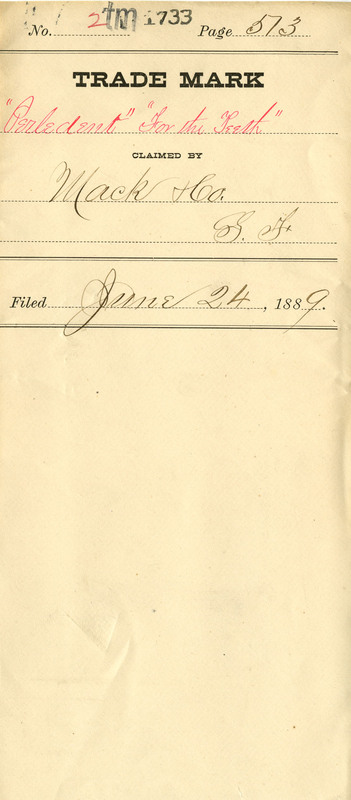 No. 2 tm 1733 Page 513
TRADE MARK
"Perledent" "For the Teeth"
CLAIMED BY
Mack & Co.
S. F.
Filed June 24, 1889.